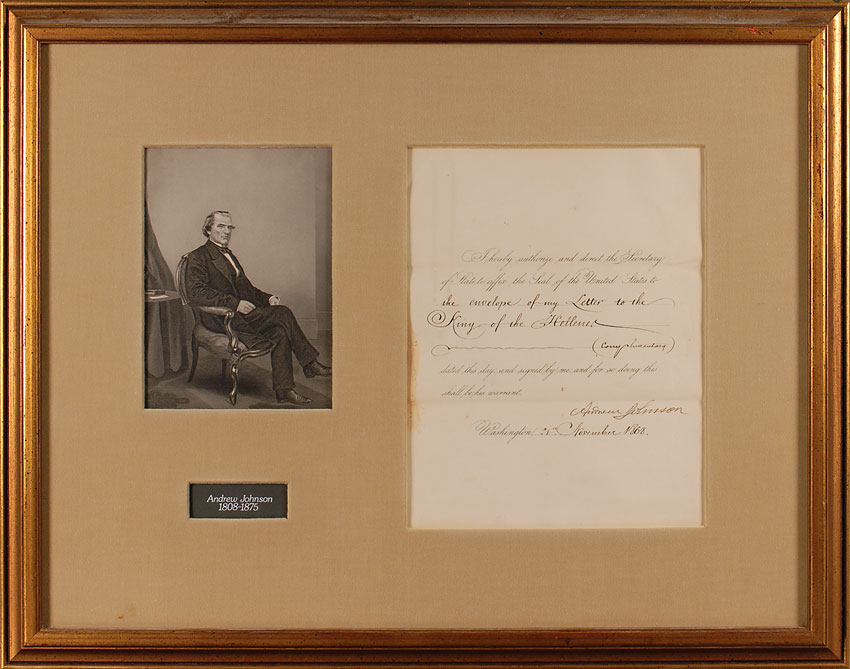 I hereby authorize and direct the Secretary
of State to affix the Seal of the United States to
the envelope of my Letter to the
King of the Hellenes
(Congratulatory)
dated this day, and signed by me, and for so doing this
shall be his warrant.
Andrew Johnson
Washington, November 1868.
Andrew Johnson
1808-1875